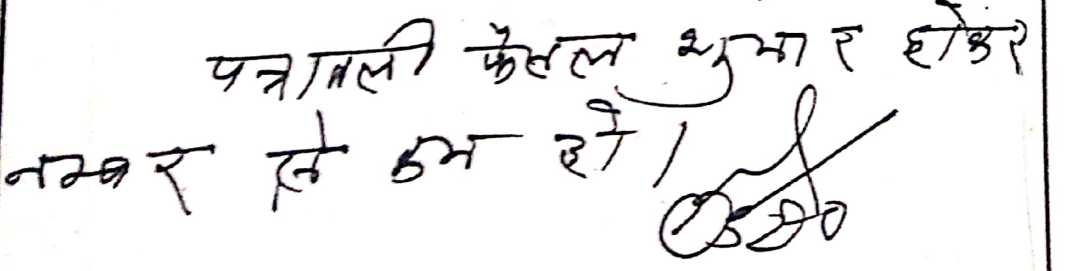 पत्रावली फैसल शुमार होकर
नम्बर से कम हो।